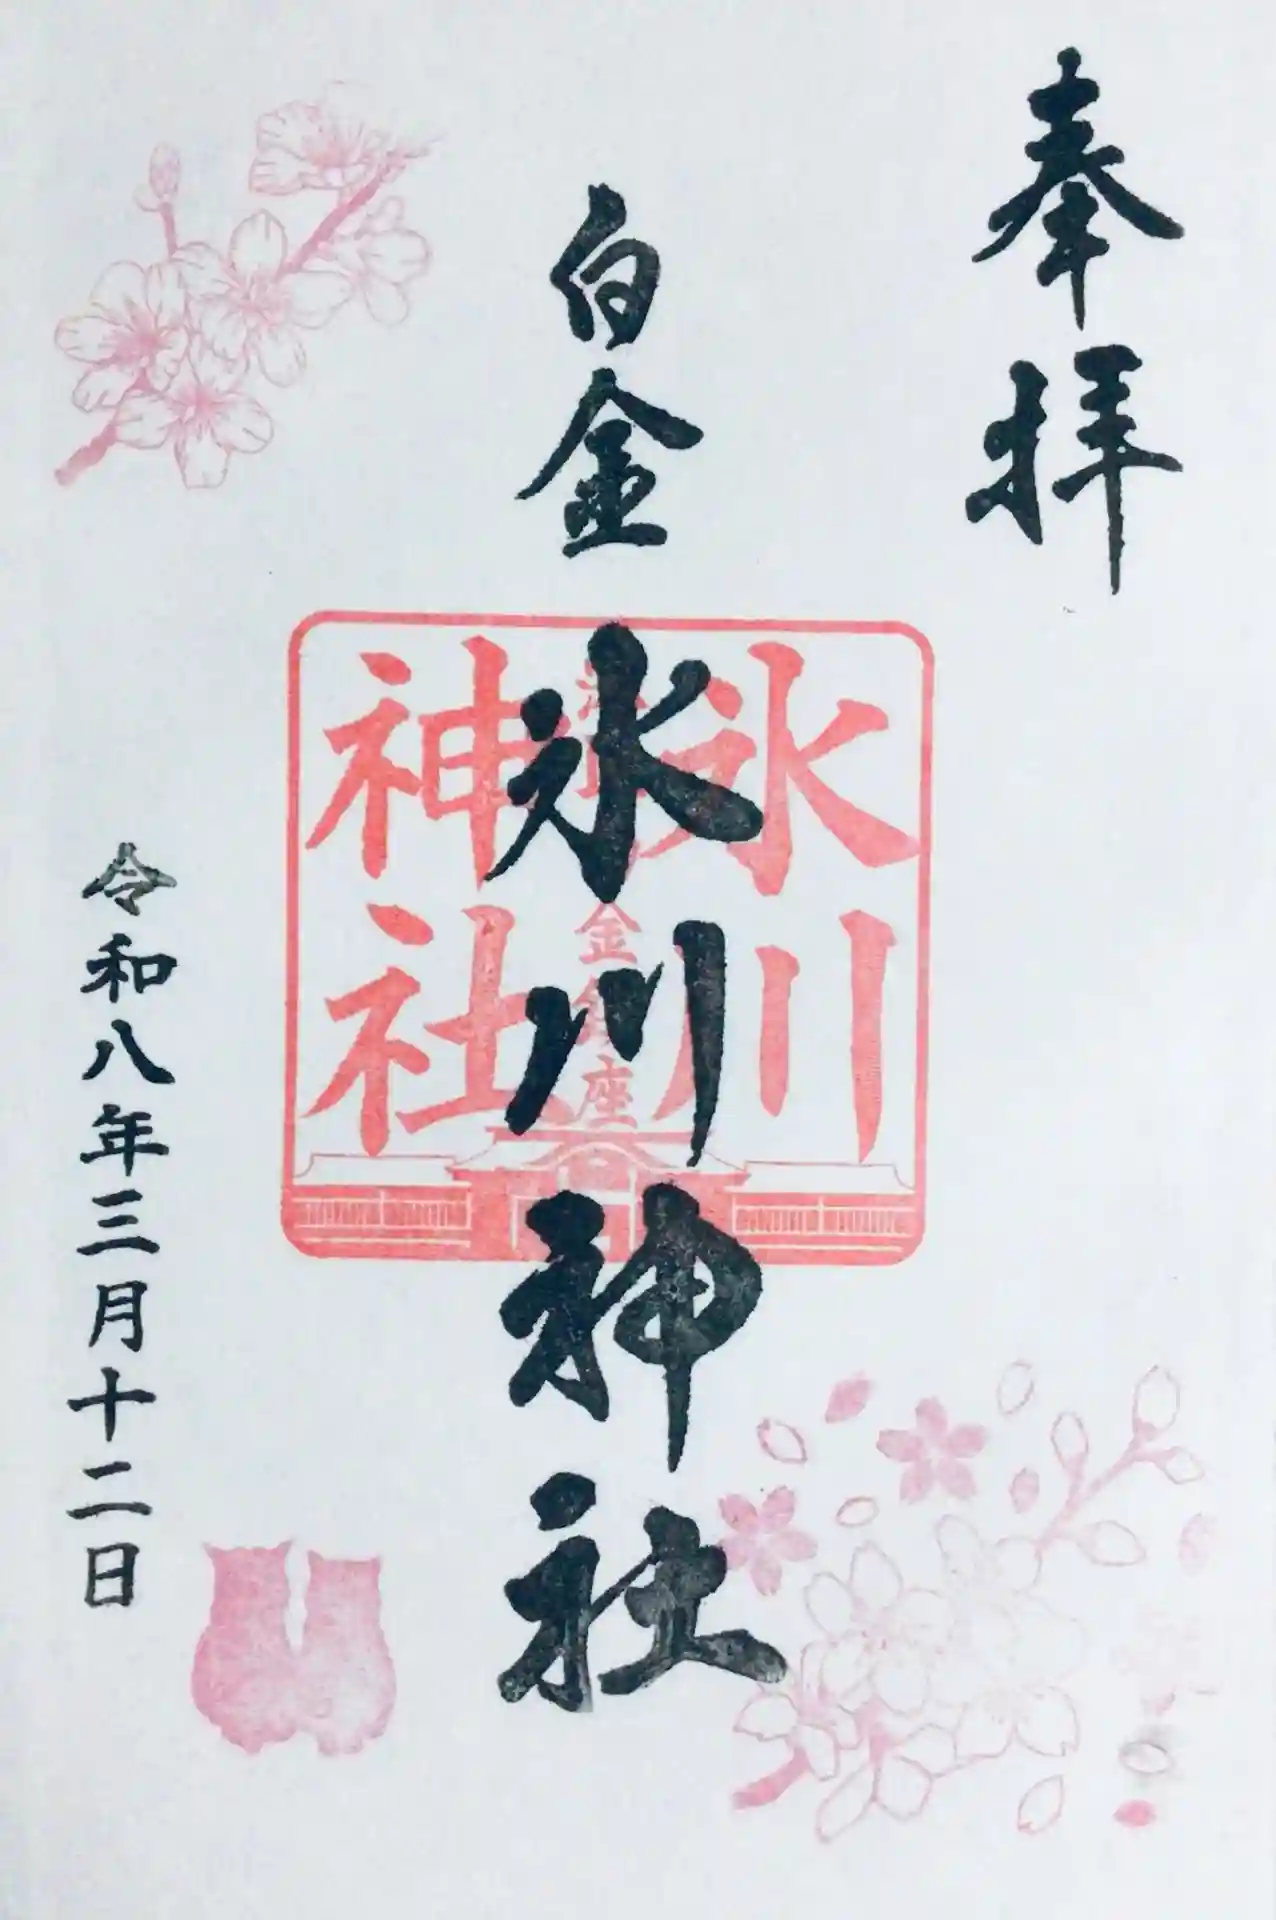 奉拝
白金
氷川神社
氷川
神社
金
座
令和八年三月十二日